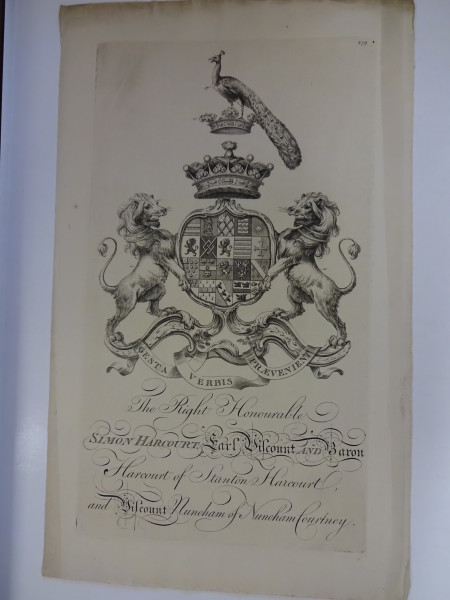 279
GESTA VERBIS PRÆVENIENT
The Right Honourable
SIMON HARCOURT, Earl Viscount AND Baron
Harcourt of Stanton Harcourt,
and Viscount Nuneham of Nuneham Courtney.